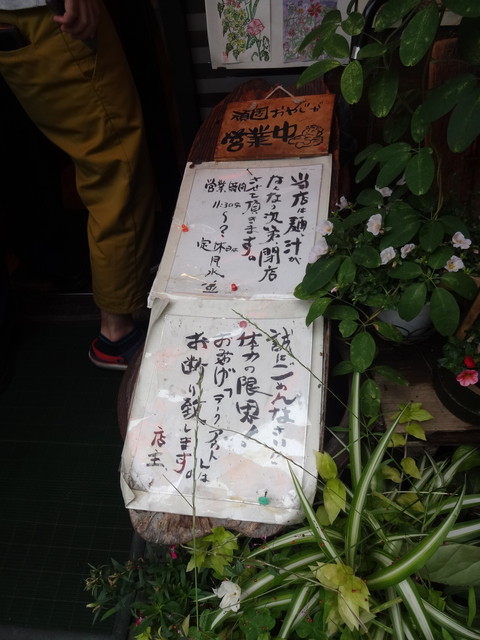 頑固おやじが
営業中
当店は麺、汁が
なくなり次第、閉店
させて頂きます。
営業時間
11:30分
〜?
定休日は
月
水
誠にごめんなさい!!
体力の限界!!
おみやげ「テークアウト」は
お断り致します。
店主